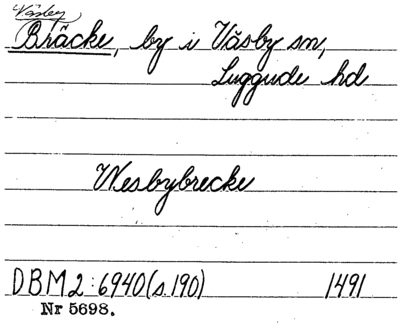 Väsby
Bräcke, by i Väsby sn,
Luggude hd
Wesbybrecke
DBM2:6940(s.190) 1491
Nr 5698.